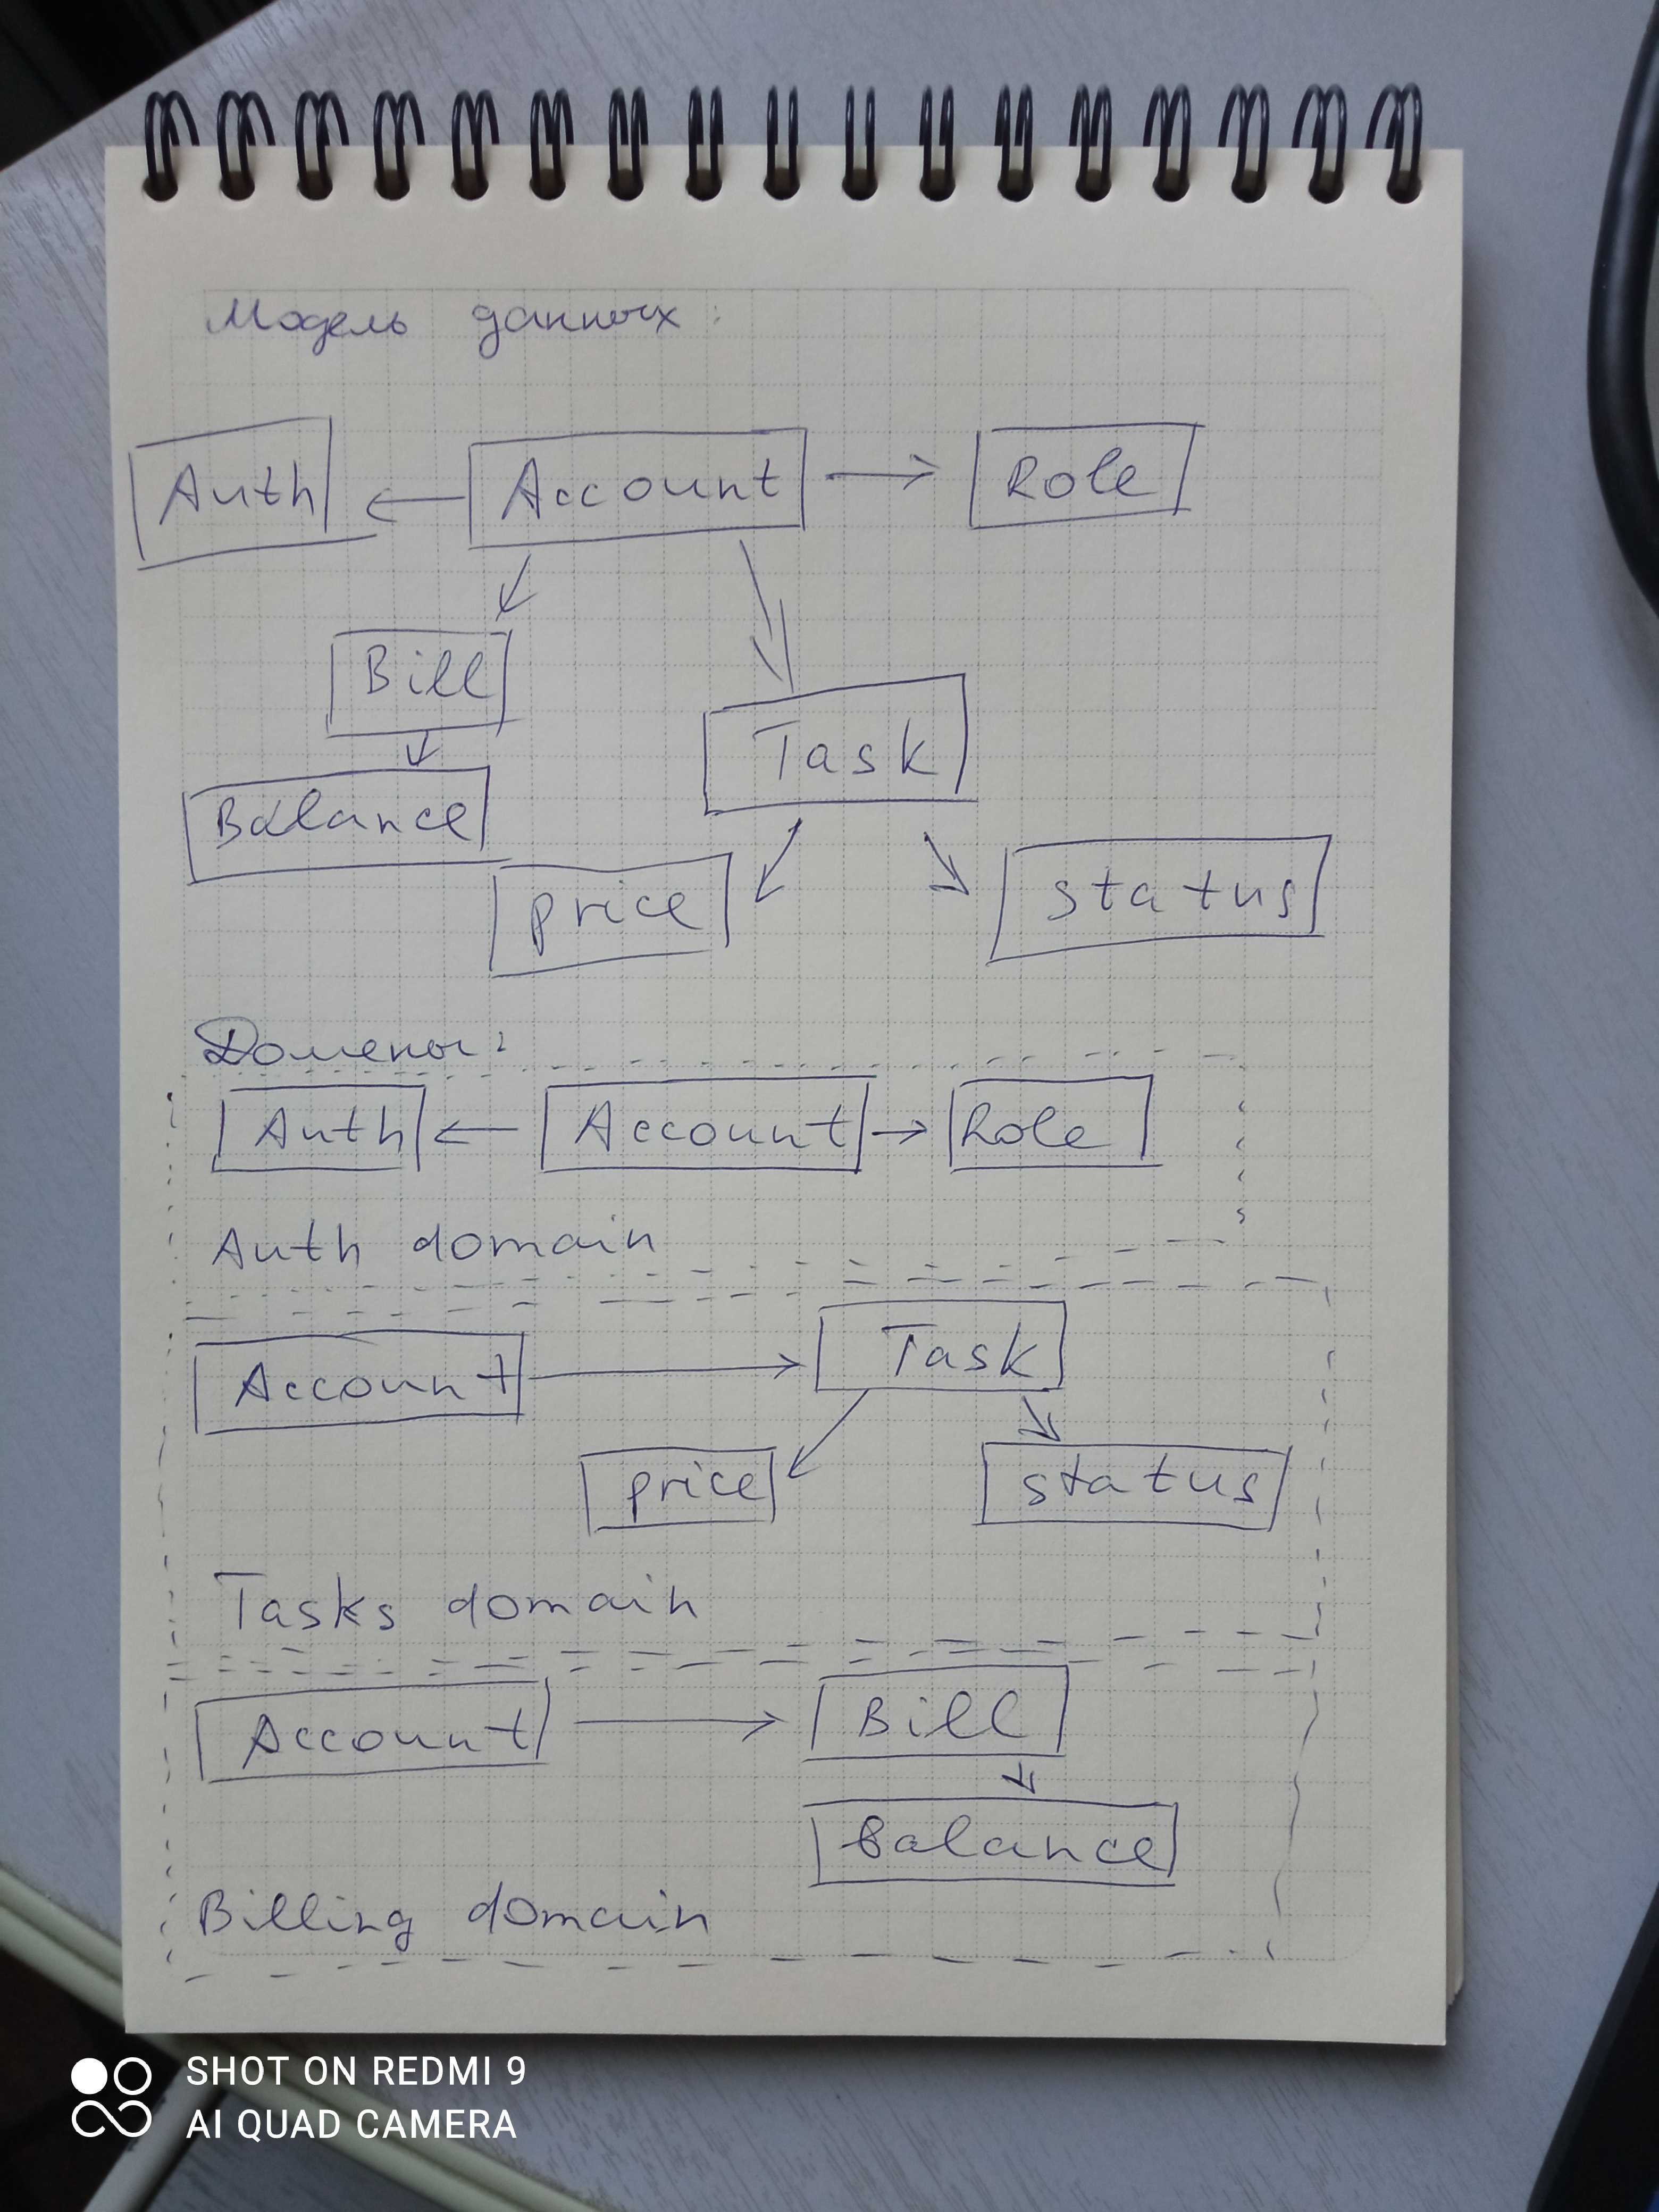 Модель данных:
Auth Account Role
Bill
Task
Balance
price status
Домены:
Auth Account Role
Auth domain
Account Task
price status
Tasks domain
Account Bill
balance
Billing domain
SHOT ON REDMI 9
AI QUAD CAMERA